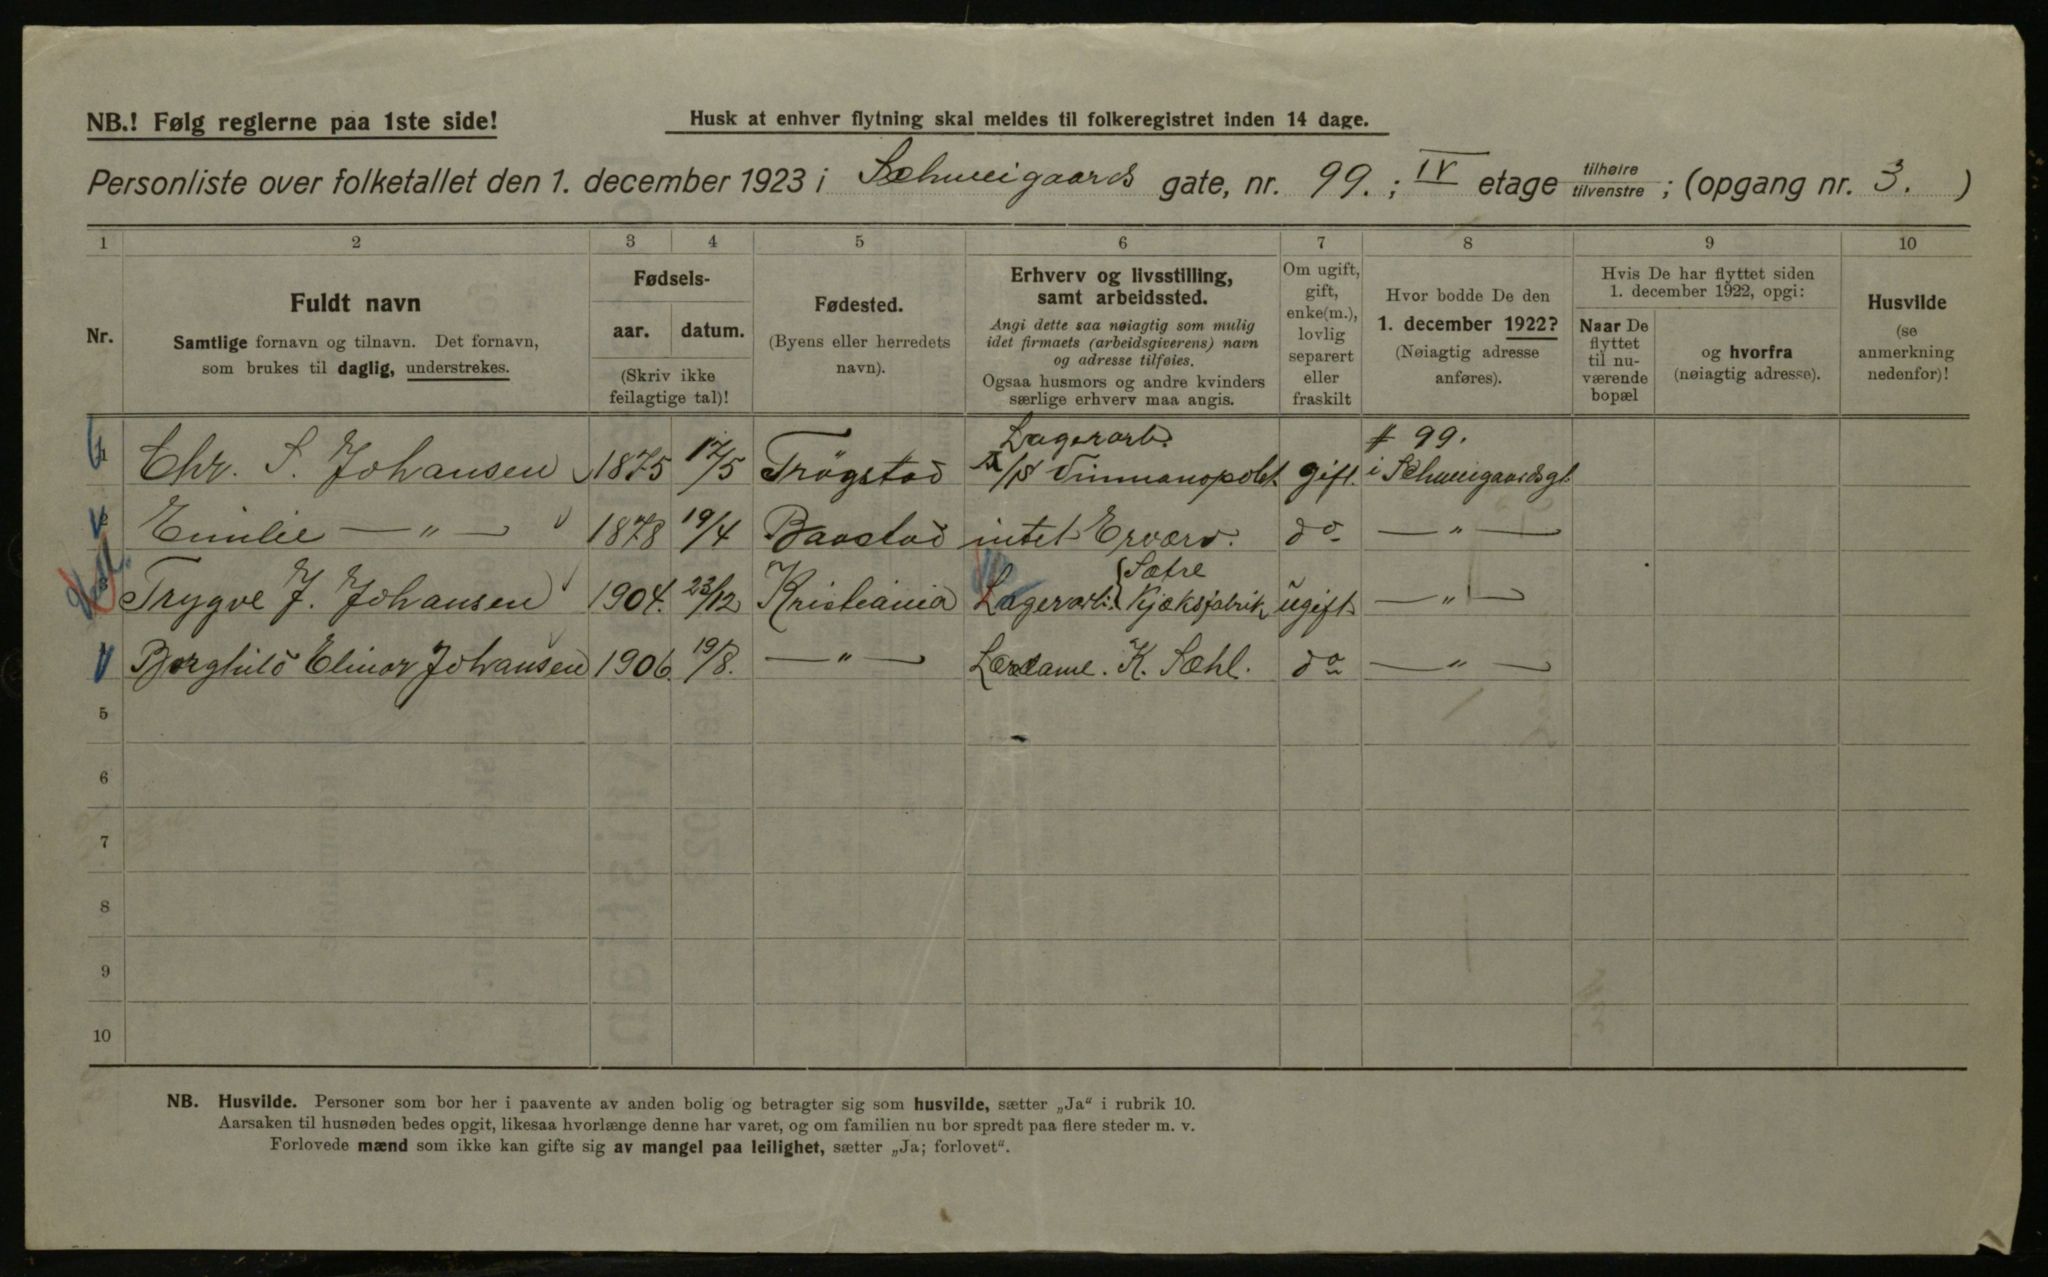 NB.! Følg reglerne paa 1ste side!
Husk at enhver flytning skal meldes til folkeregistret inden 14 dage.
Personliste over folketallet den 1. december 1923 i Schweigaards gate, nr. 99. ; IV etage tilhøire tilvenstre ; (opgang nr. 3. )
1 2 3 4 5 6 7 8 9 10
Nr.
Fuldt navn
Samtlige fornavn og tilnavn. Det fornavn,
som brukes til daglig, understrekes.
Fødsels-
aar. datum.
(Skriv ikke
feilagtige tal)!
Fødested.
(Byens eller herredets
navn).
Erhverv og livsstilling,
samt arbeidssted.
Angi dette saa nøiagtig som mulig
idet firmaets (arbeidsgiverens) navn
og adresse tilføies.
Ogsaa husmors og andre kvinders
særlige erhverv maa angis.
Om ugift,
gift,
enke(m.),
lovlig
separert
eller
fraskilt
Hvor bodde De den
1. december 1922?
(Nøiagtig adresse
anføres).
Hvis De har flyttet siden
1. december 1922, opgi:
Naar De
flyttet
til nu-
værende
bopæl
og hvorfra
(nøiagtig adresse).
Husvilde
(se
anmerkning
nedenfor)!
Lagerarb. # 99.
1 Chr. S. Johansen 1875 17/5 Trøgstad A/S Vinmonopolet gift. i Schweigaardsgt.
2 Emilie — " — 1878 19/4 Baastad intet Erværv. do — " —
3 Trygve J. Johansen 1904. 23/12 Kristiania Lagerarb. { Sætre Kjæksfabrik ugift — " —
Borghild Elinor Johansen 1906. 19/8. — " — Læredame. K. Sæhl. do — " —
5
6
7
8
9
10
NB. Husvilde. Personer som bor her i paavente av anden bolig og betragter sig som husvilde, sætter „Ja“ i rubrik 10.
Aarsaken til husnøden bedes opgit, likesaa hvorlænge denne har varet, og om familien nu bor spredt paa flere steder m. v.
Forlovede mænd som ikke kan gifte sig av mangel paa leilighet, sætter „Ja; forlovet“.